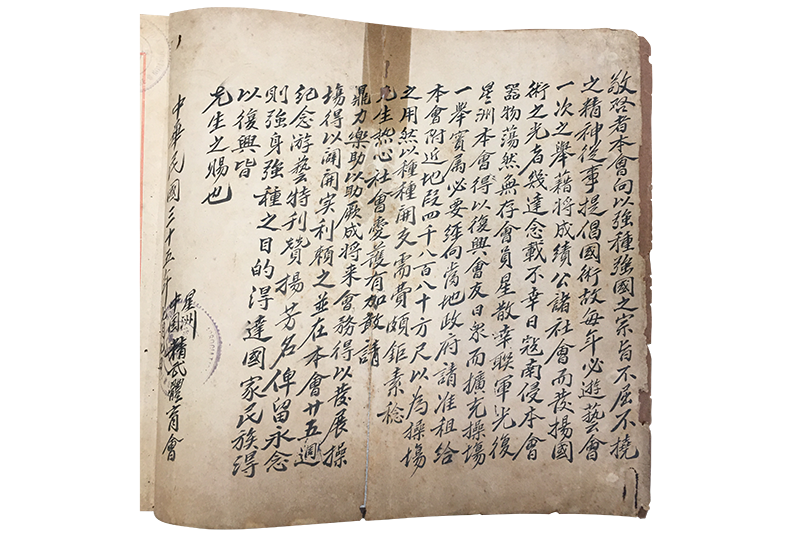 敬啓者本會向以強種強國之宗旨不屈不撓
之精神從事提倡國術故每年必游藝會
一次之舉藉將成績公諸社會而發揚國
術之光者幾達念載不幸日寇南侵本會
器物蕩然無存會員星散幸聯軍光復
星洲本會得以復興會友日衆而擴充操塲
一舉實属必要經向當地政府請准租給
本會附近地段四千八百八十方尺以為操塲
之用然以種種開支需費頗鉅素稔
先生熱心社會愛護有加敬請
鼎力樂助以助厥成將来會務得以發展操
塲得以闢開实利頼之並在本會廿五週
紀念游藝特刊贊揚芳名俾留永念
則強身強種之目的得達國家民族得
以復興皆
先生之賜也
中華民國三十五年
星洲
中國精武體育會